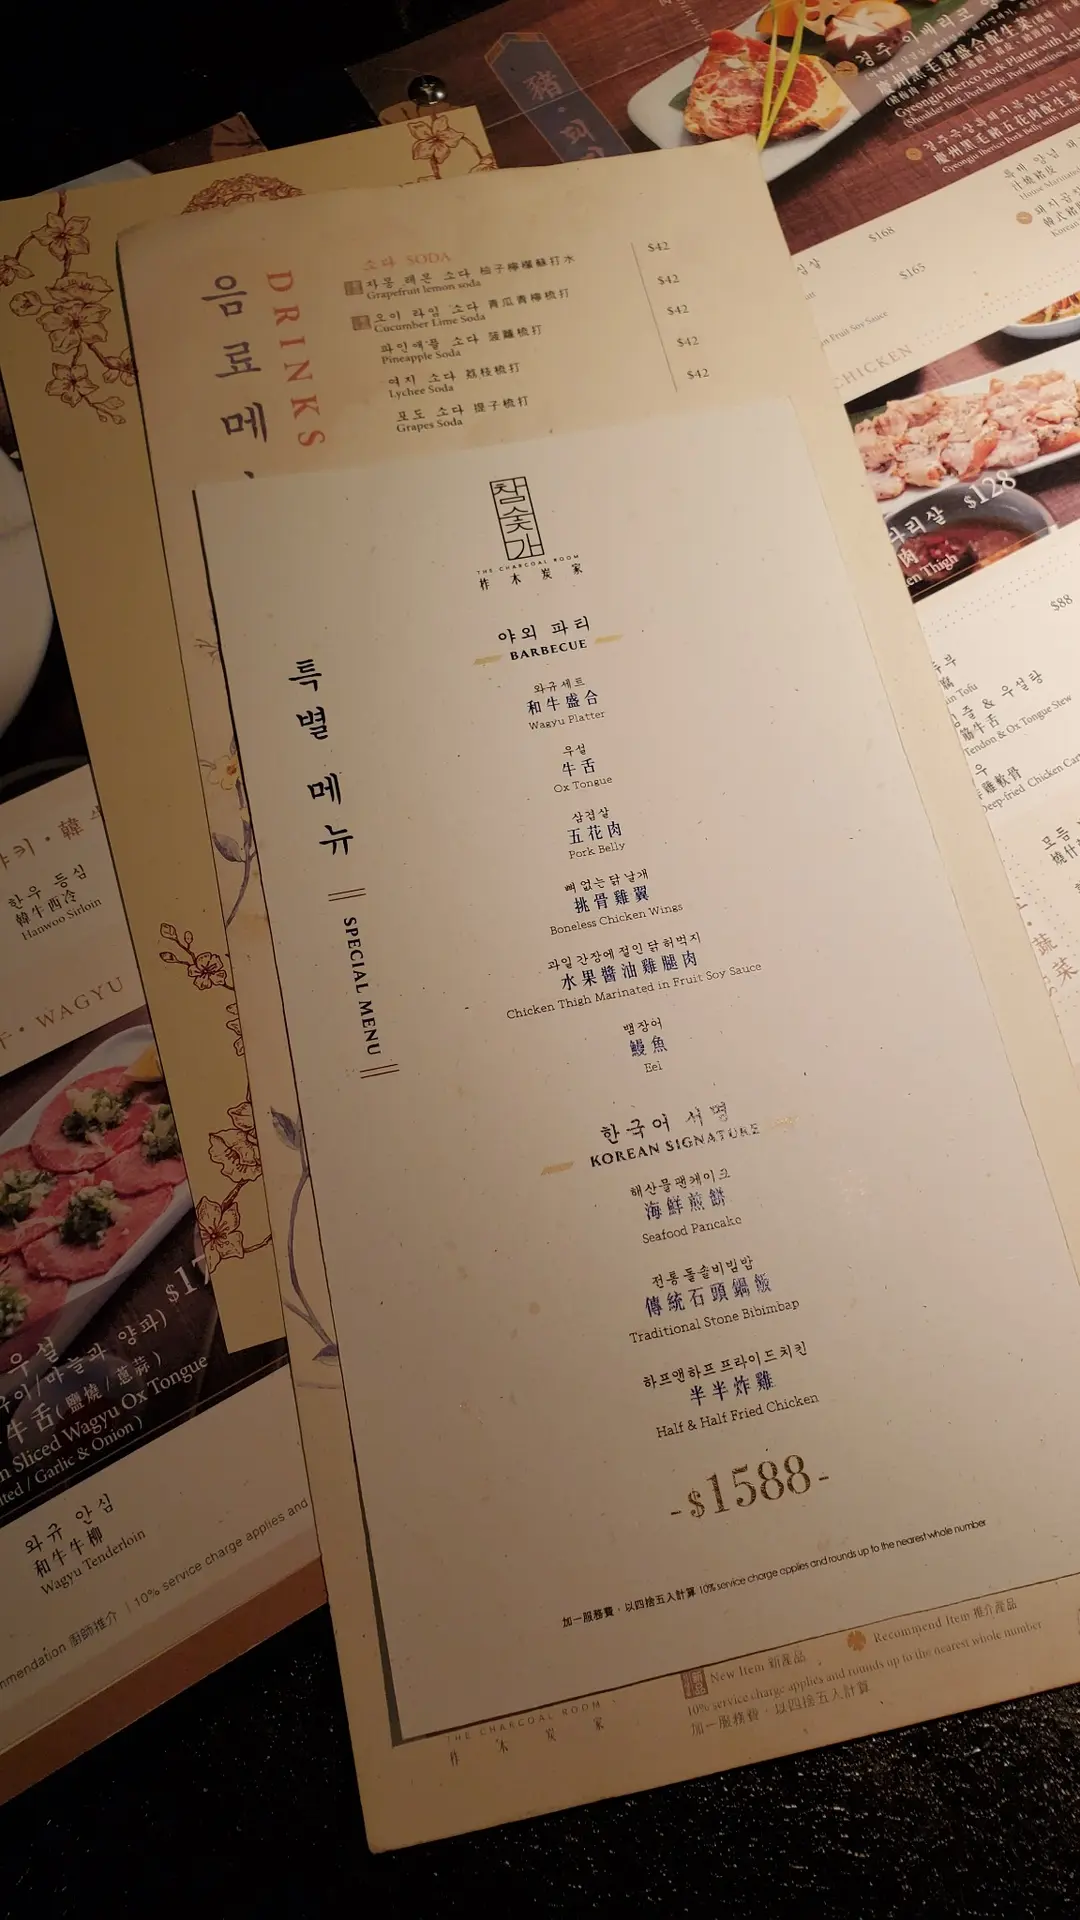 음료메
DRINKS
소다 SODA
자몽 레몬 소다 柚子檸檬蘇打水 $42
Grapefruit lemon soda
오이 라임 소다 青瓜青檸梳打 $42
Cucumber Lime Soda
파인애플 소다 菠蘿梳打 $42
Pineapple Soda
여지 소다 荔枝梳打 $42
Lychee Soda
포도 소다 提子梳打 $42
Grapes Soda
참숯가
THE CHARCOAL ROOM
柞木炭家
특별 메뉴
SPECIAL MENU
야외 파티
BARBECUE
와규세트
和牛盛合
Wagyu Platter
우설
牛舌
Ox Tongue
삼겹살
五花肉
Pork Belly
뼈 없는 닭 날개
挑骨雞翼
Boneless Chicken Wings
과일 간장에 절인 닭 허벅지
水果醬油雞腿肉
Chicken Thigh Marinated in Fruit Soy Sauce
뱀장어
鰻魚
Eel
한국어 서명
KOREAN SIGNATURE
해산물 팬케이크
海鮮煎餅
Seafood Pancake
전통 돌솥비빔밥
傳統石頭鍋飯
Traditional Stone Bibimbap
하프앤하프 프라이드치킨
半半炸雞
Half & Half Fried Chicken
-$1588-
加一服務費，以四捨五入計算 10% service charge applies and rounds up to the nearest whole number
新品 New Item 新產品
Recommend Item 推介產品
10% service charge applies and rounds up to the nearest whole number
加一服務費，以四捨五入計算
THE CHARCOAL ROOM
柞木炭家
한우 등심
韓牛西冷
Hanwoo Sirloin
WAGYU
우설
牛舌(鹽燒 / 蔥蒜)
Sliced Wagyu Ox Tongue
Garlic & Onion)
와규 안심
和牛牛柳
Wagyu Tenderloin
廚師推介 | 10% service charge applies and
豬
慶州黑毛豬盛合配生菜
Gyeongju Iberico Pork Platter with
慶州黑毛豬五花肉配生菜
Gyeongju Iberico Pork Belly with
汁燒豬皮
$168
$165
Fruit Soy Sauce
CHICKEN
$128
Thigh
$88
Tofu
Tendon & Ox Tongue Stew
雞軟骨
Deep-fried Chicken
모듬
蔬
菜